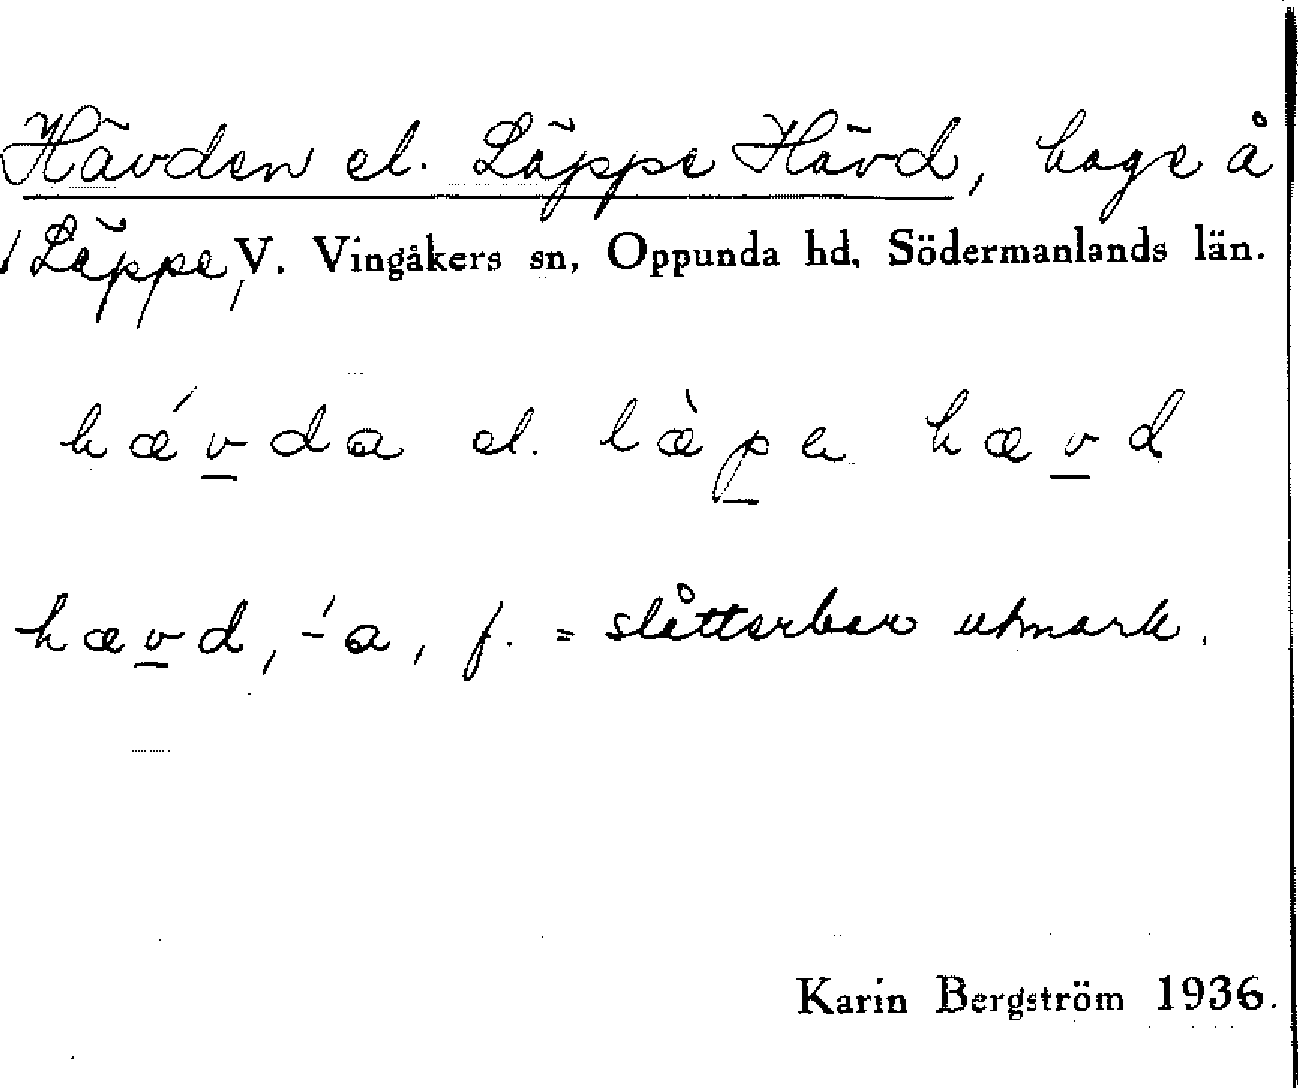 Hävden el. Läppe Hävd, hage å
Läppe, V. Vingåkers sn, Oppunda hd, Södermanlands län.
hǽvda el. læ̀pe hævd
hævd, -́a, f. = slåtterbar utmark.
Karin Bergström 1936.